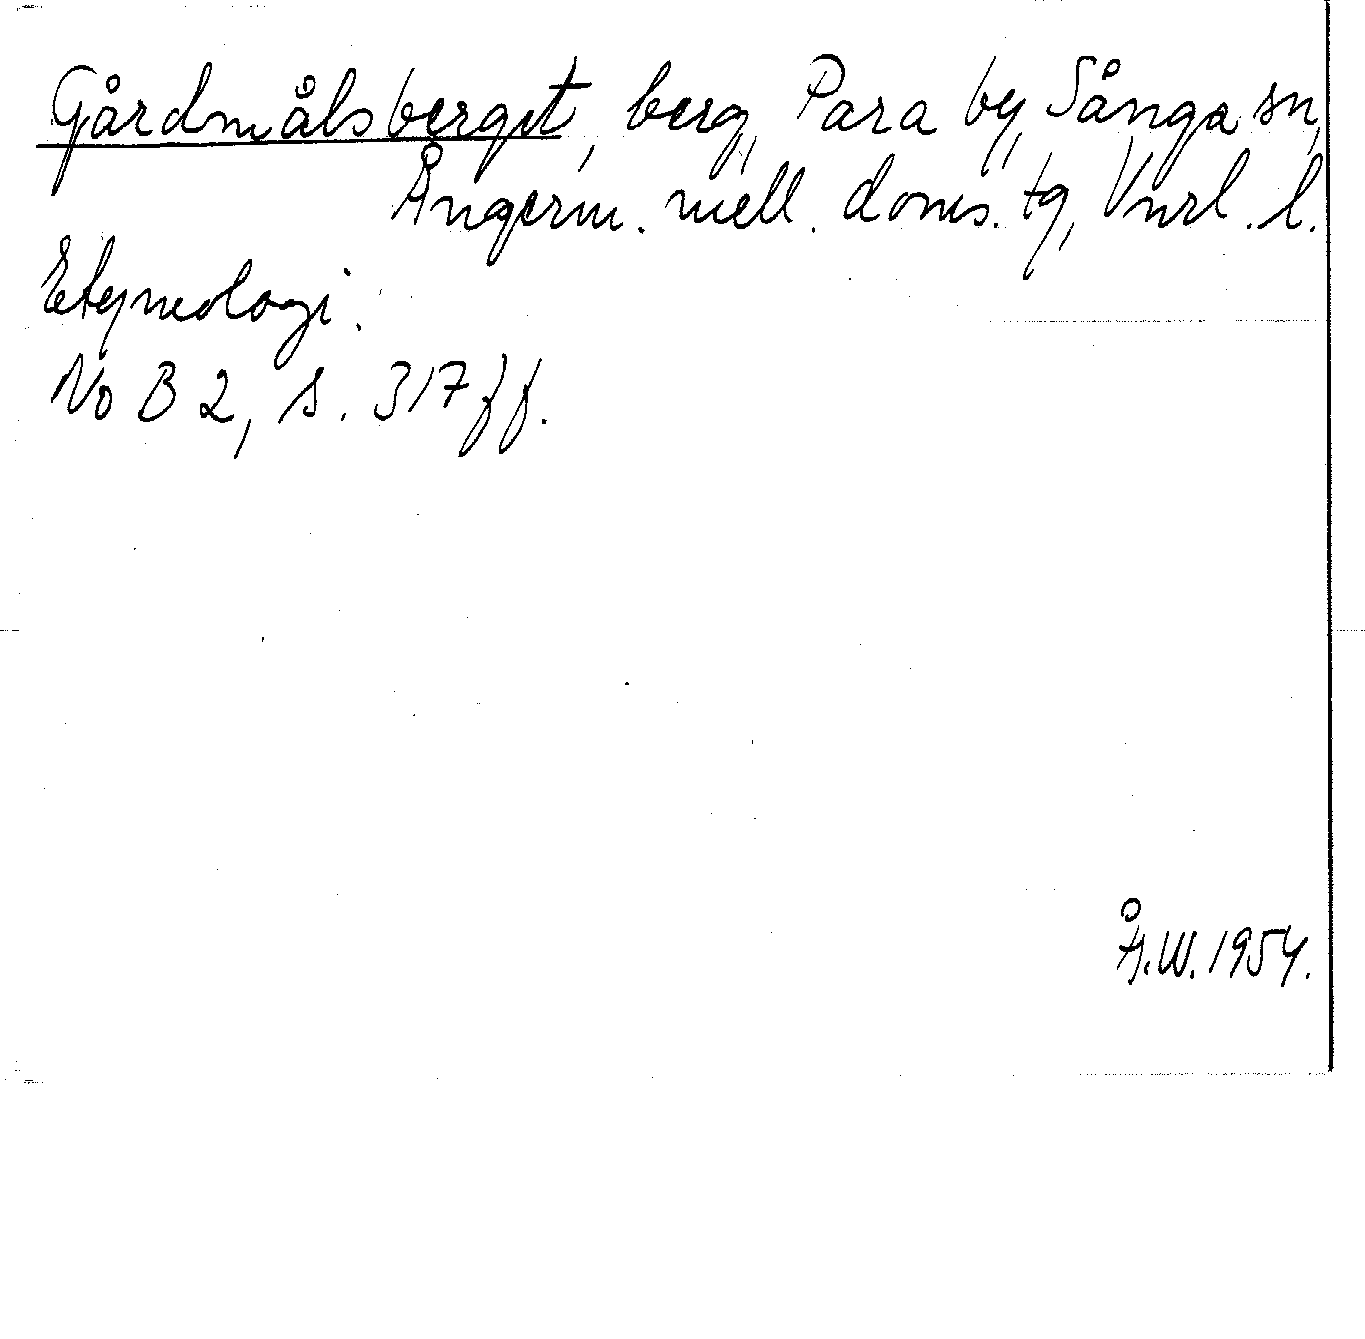 Gårdmålsberget, berg, Para by, Sånga sn,
Ångerm. mell. doms. tg, Vnrl. l.
Etymologi.
NoB 2, s. 317 ff.
Å.W. 1954.